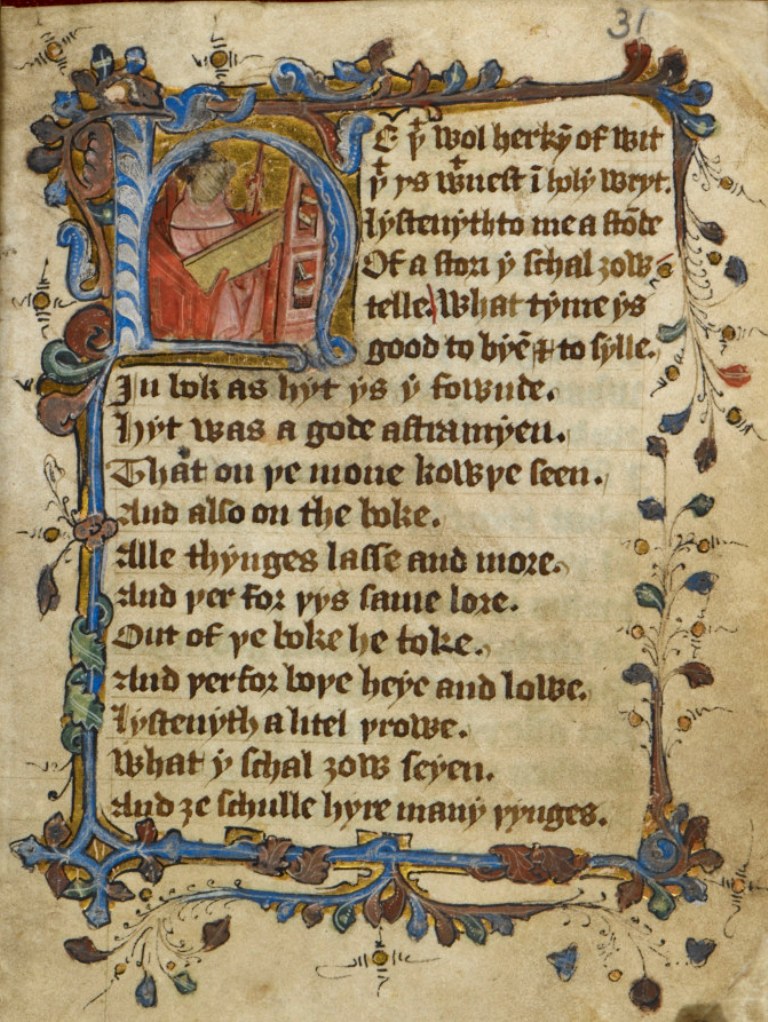 31
He þͭ wol herkȳ of wit
þͭ ys wͭnest ī holy wryt.
lystenyth to me a stōde
Of a stori y schal ȝow
telle. What tyme ys
good to byē & to sylle.
In bok as hyt ys y fownde.
Hyt was a gode astramyen.
That on þe mone kowþe seen.
And also on the boke.
Alle thynges lasse and more.
And þer for þys same lore.
Out of þe boke he toke.
And þerfor boþe heye and lowe.
lystenyth a litel þrowe.
What y schal ȝow seyen.
And ȝe schulle hyre many þynges.